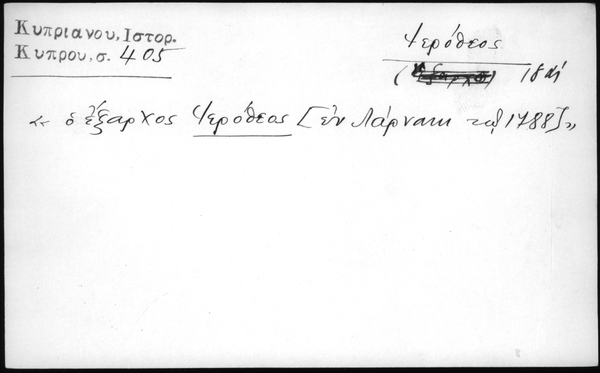 Κυπριανου, Ιστορ.
Κυπρου, σ. 405
Ἱερόθεος
18 αἰ
« ὁ ἔξαρχος Ἱερόθεος [ἐν Λάρνακι τῷ 1788] »